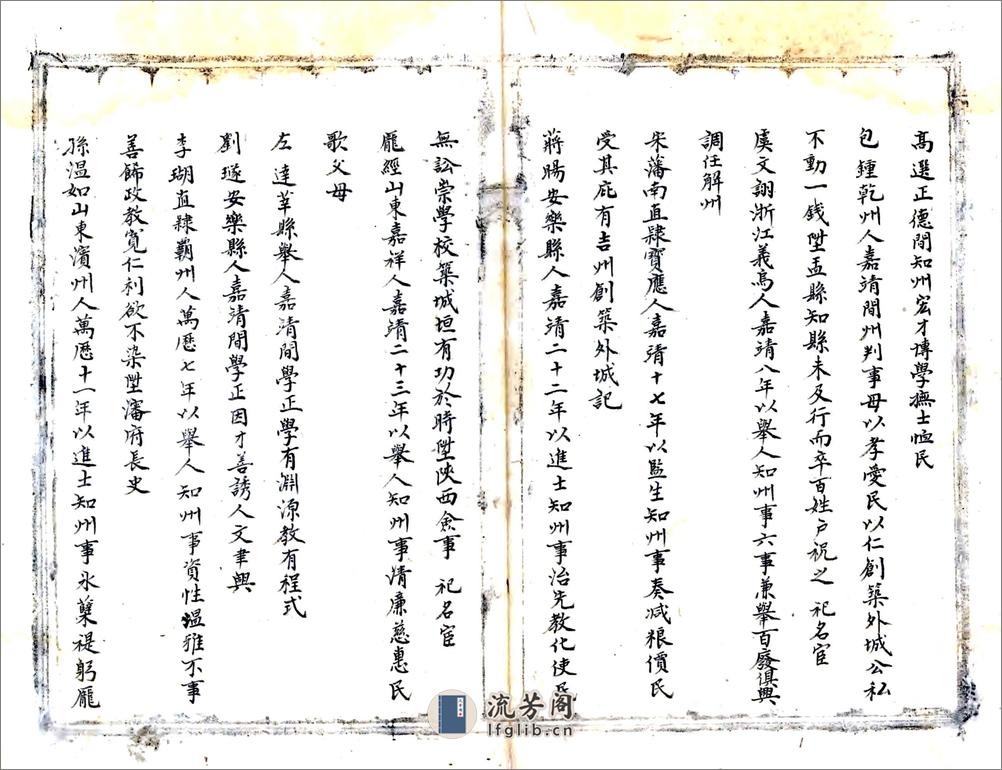 高選正德間知州宏才博學撫士恤民
包鍾乾州人嘉靖間州判事母以孝愛民以仁創築外城公私
不動一錢陞盂縣知縣未及行而卒百姓戶祝之 祀名宦
虞文翊浙江義烏人嘉靖八年以舉人知州事六事兼舉百廢俱興
調任解州
宋藩南直隸寶應人嘉靖十七年以監生知州事奏減粮價民
受其庇有吉州創築外城記
蔣暘安樂縣人嘉靖二十二年以進士知州事治先教化使民
無訟崇學校築城垣有功於時陞陝西僉事 祀名宦
龐經山東嘉祥人嘉靖二十三年以舉人知州事清廉慈惠民
歌父母
左達莘縣舉人嘉清間學正學有淵源教有程式
劉璲安樂縣人嘉清間學正因才善誘人文聿興
李瑚直隸霸州人萬歷七年以舉人知州事資性溫雅不事
善飾政教寬仁利欲不染陞瀋府長史
孫溫如山東濱州人萬歷十一年以進士知州事氷蘗禔躬龐
流芳阁
lfglib.cn